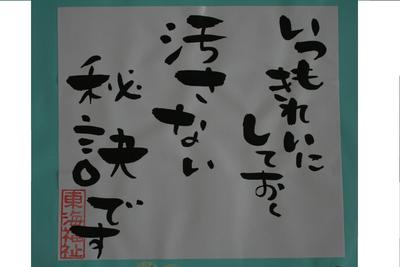 いつも
きれいに
しておく
汚さない
秘訣です
東海福祉